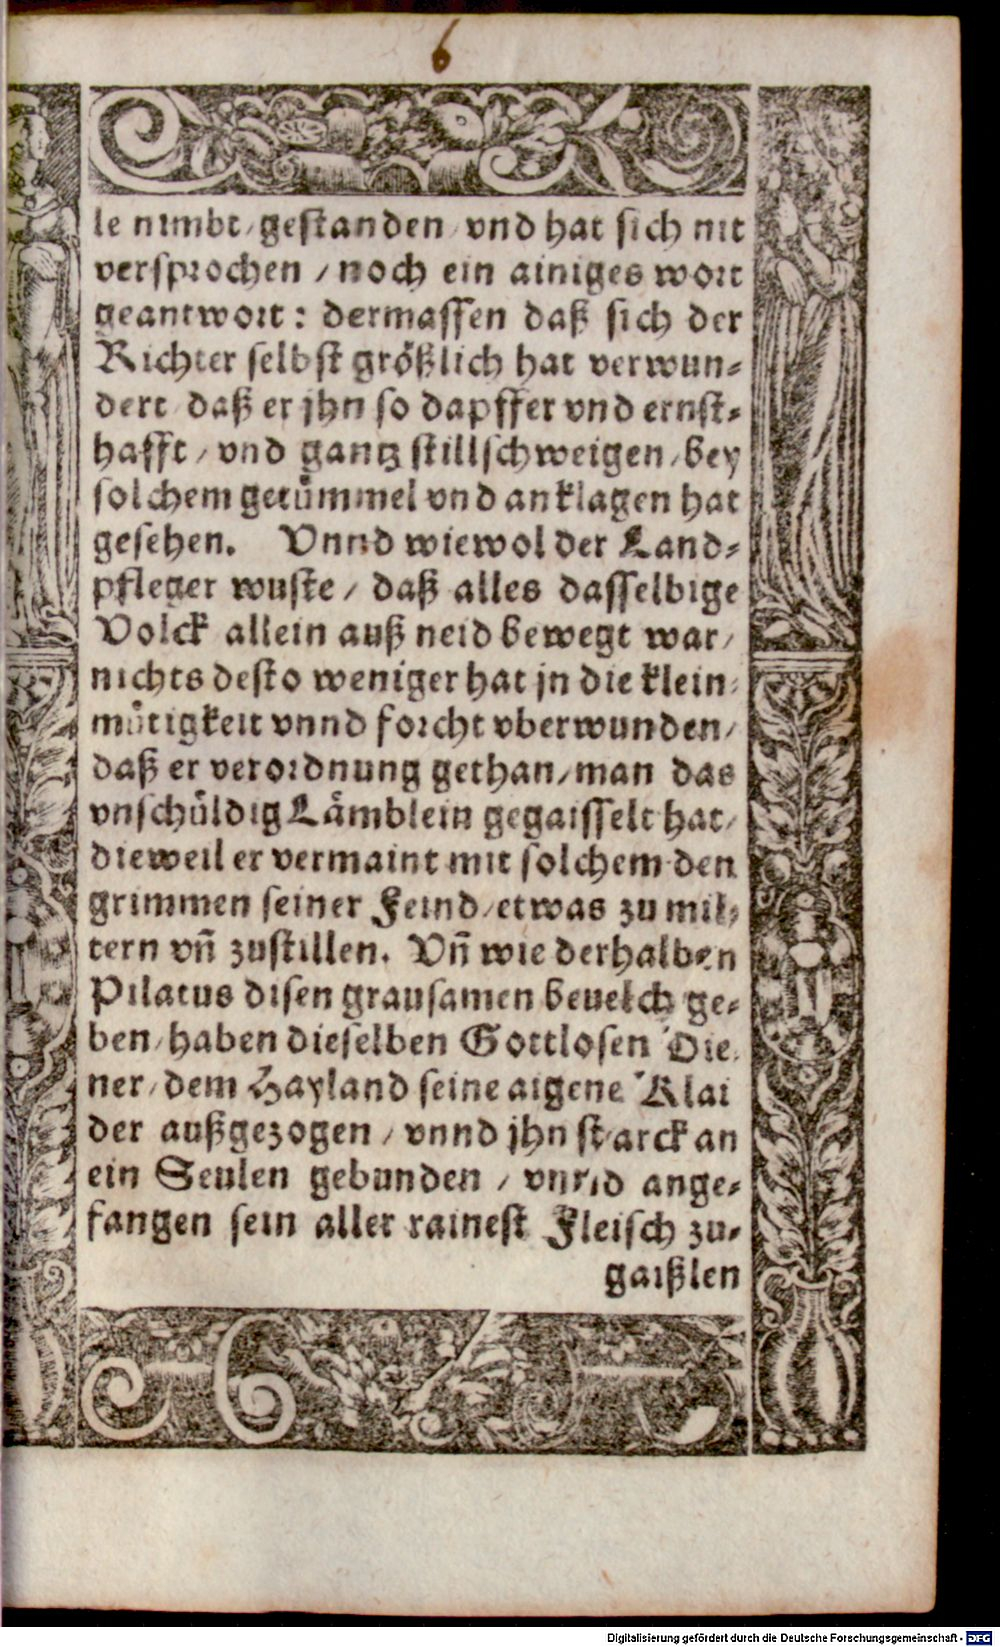 6
le nimbt / gestanden / vnd hat sich nit
versprochen / noch ein ainiges wort
geantwort: dermassen daß sich der
Richter selbst größlich hat verwun-
dert / daß er jhn so dapffer vnd ernst-
hafft / vnd gantz stillschweigen / bey
solchem getuͤmmel vnd anklagen hat
gesehen. Vnnd wiewol der Land-
pfleger wuste / daß alles dasselbige
Volck allein auß neid bewegt war /
nichts desto weniger hat jn die klein-
muͤtigkeit vnnd forcht vberwunden /
daß er verordnung gethan / man das
vnschuͤldig Laͤmblein gegaisselt hat /
dieweil er vermaint mit solchem den
grimmen seiner Feind / etwas zu mil-
tern vñ zustillen. Vñ wie derhalben
Pilatus disen grausamen beuelch ge-
ben / haben dieselben Gottlosen Die-
ner / dem Hayland seine aigene Klai
der außgezogen / vnnd jhn starck an
ein Seulen gebunden / vnnd ange-
fangen sein aller rainest Fleisch zu-
gaißlen
Digitalisierung gefördert durch die Deutsche Forschungsgemeinschaft - DFG